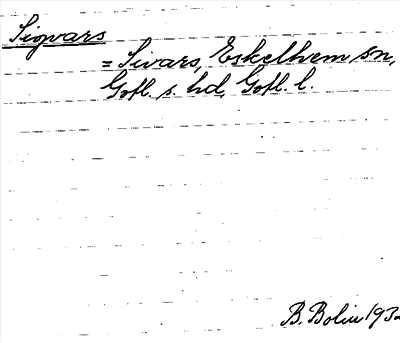 Sigvars
= Sivars, Eskelhem sn,
Gotl. s. hd, Gotl. l.
B. Bolin 193